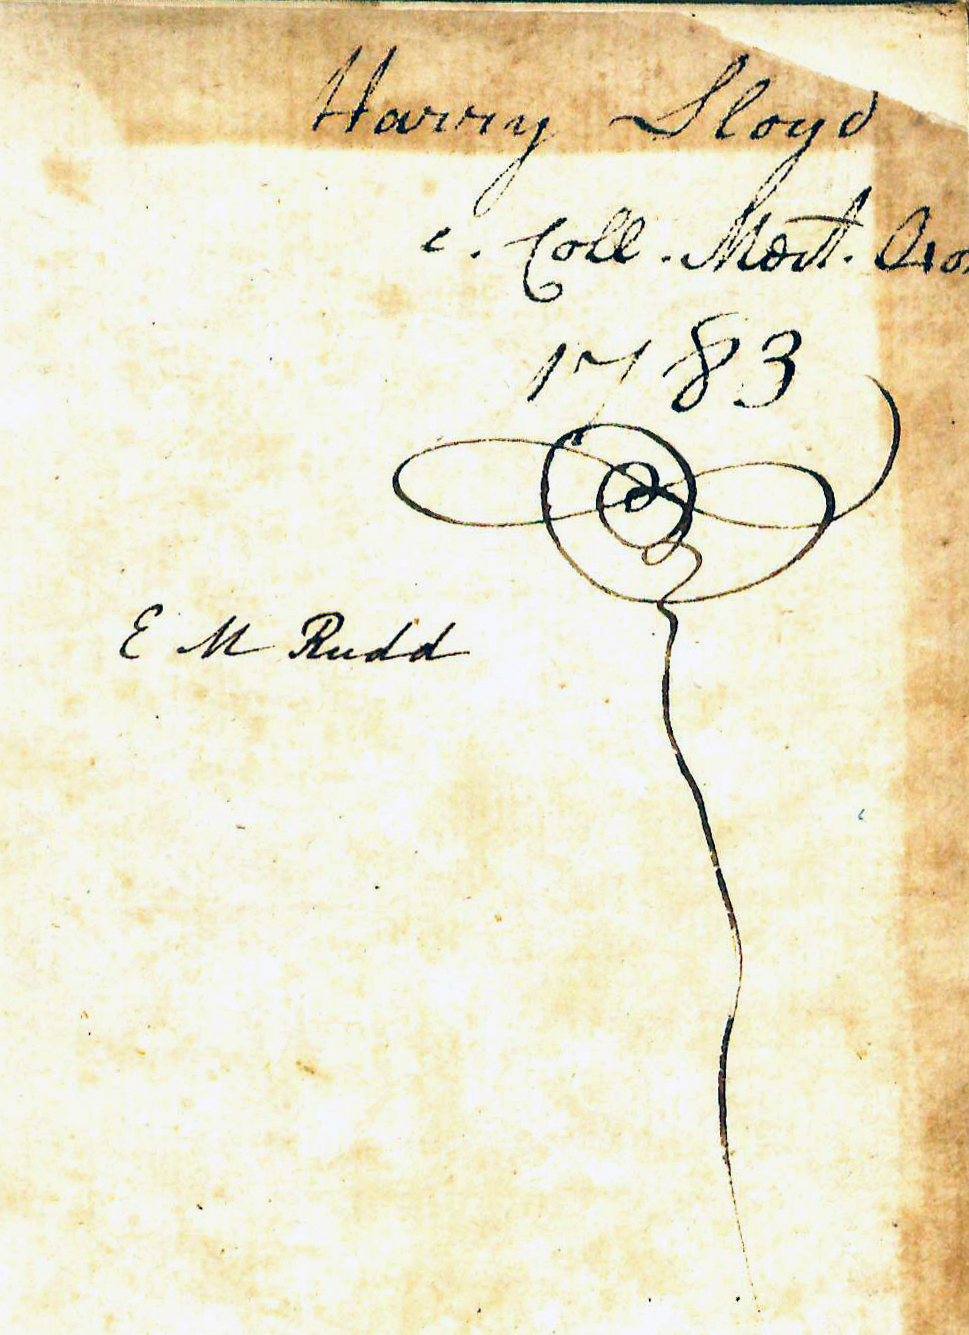 Harry Lloyd
e. Coll. Mert. Oxon
1783
E M Rudd